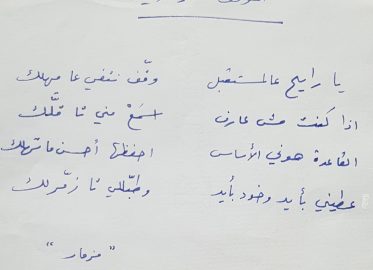 يا رايح عالمستقبل وقّف نتفي عا مهلك
اذا كنت مش عارف اسمَعْ مني تا قلَّك
القاعدة هوني الأساس احفظها أحسن ما تهلك
عطيني بأيد وخود بأيد وطبّللي تا زمّرلك
" مزمار "